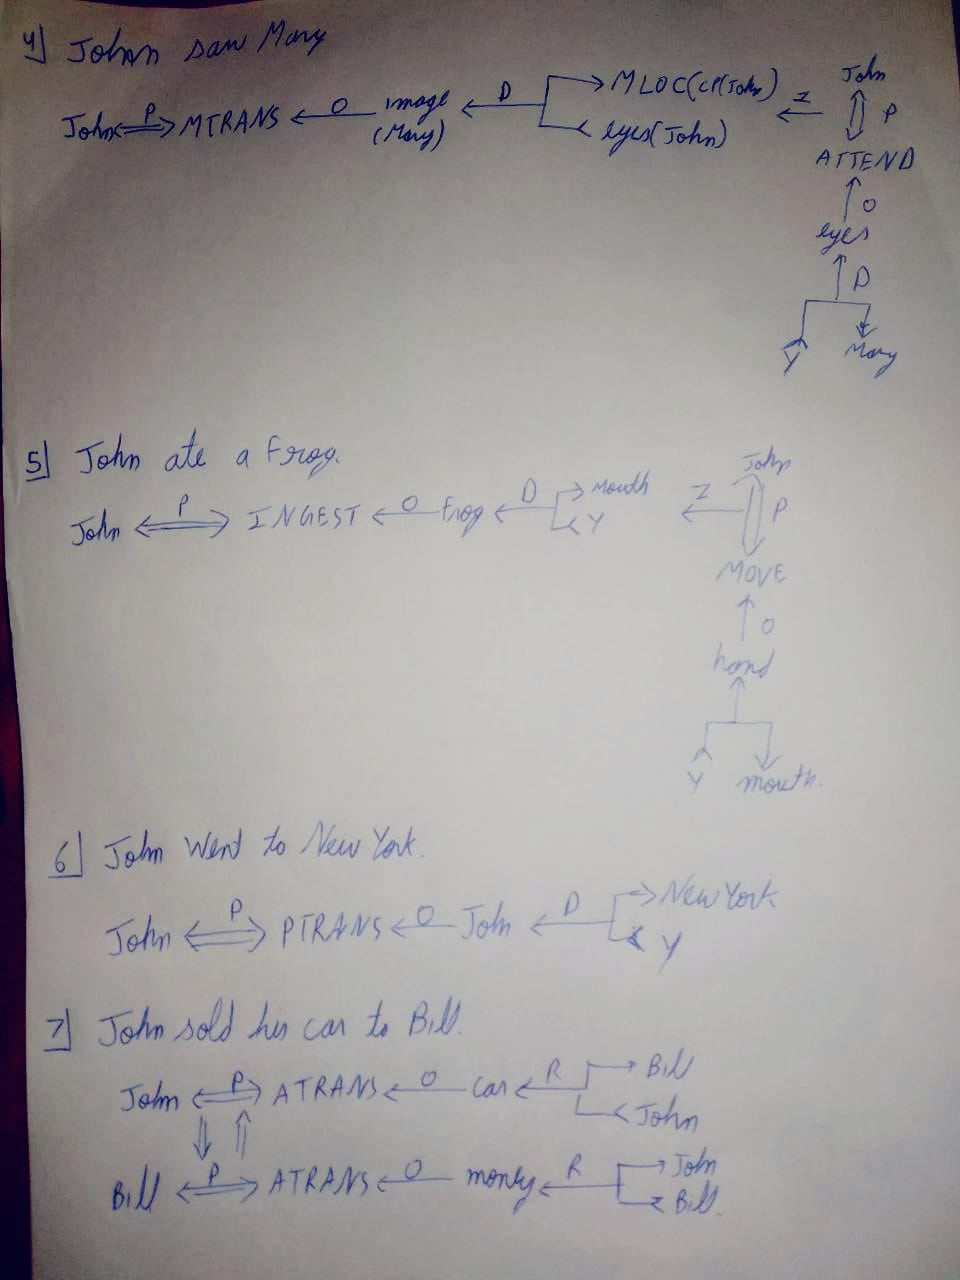 4] John saw Mary
John P MTRANS O image (Mary) D MLOC(CP(John)) eyes(John) I John P ATTEND O eyes D Y Mary
5] John ate a Frog.
John P INGEST O frog D Mouth Y I John P MOVE O hand Y mouth.
6] John Went to New York.
John P PTRANS O John D New York. Y
7] John sold his car to Bill.
John P ATRANS O car R Bill John
Bill P ATRANS O money R John Bill.